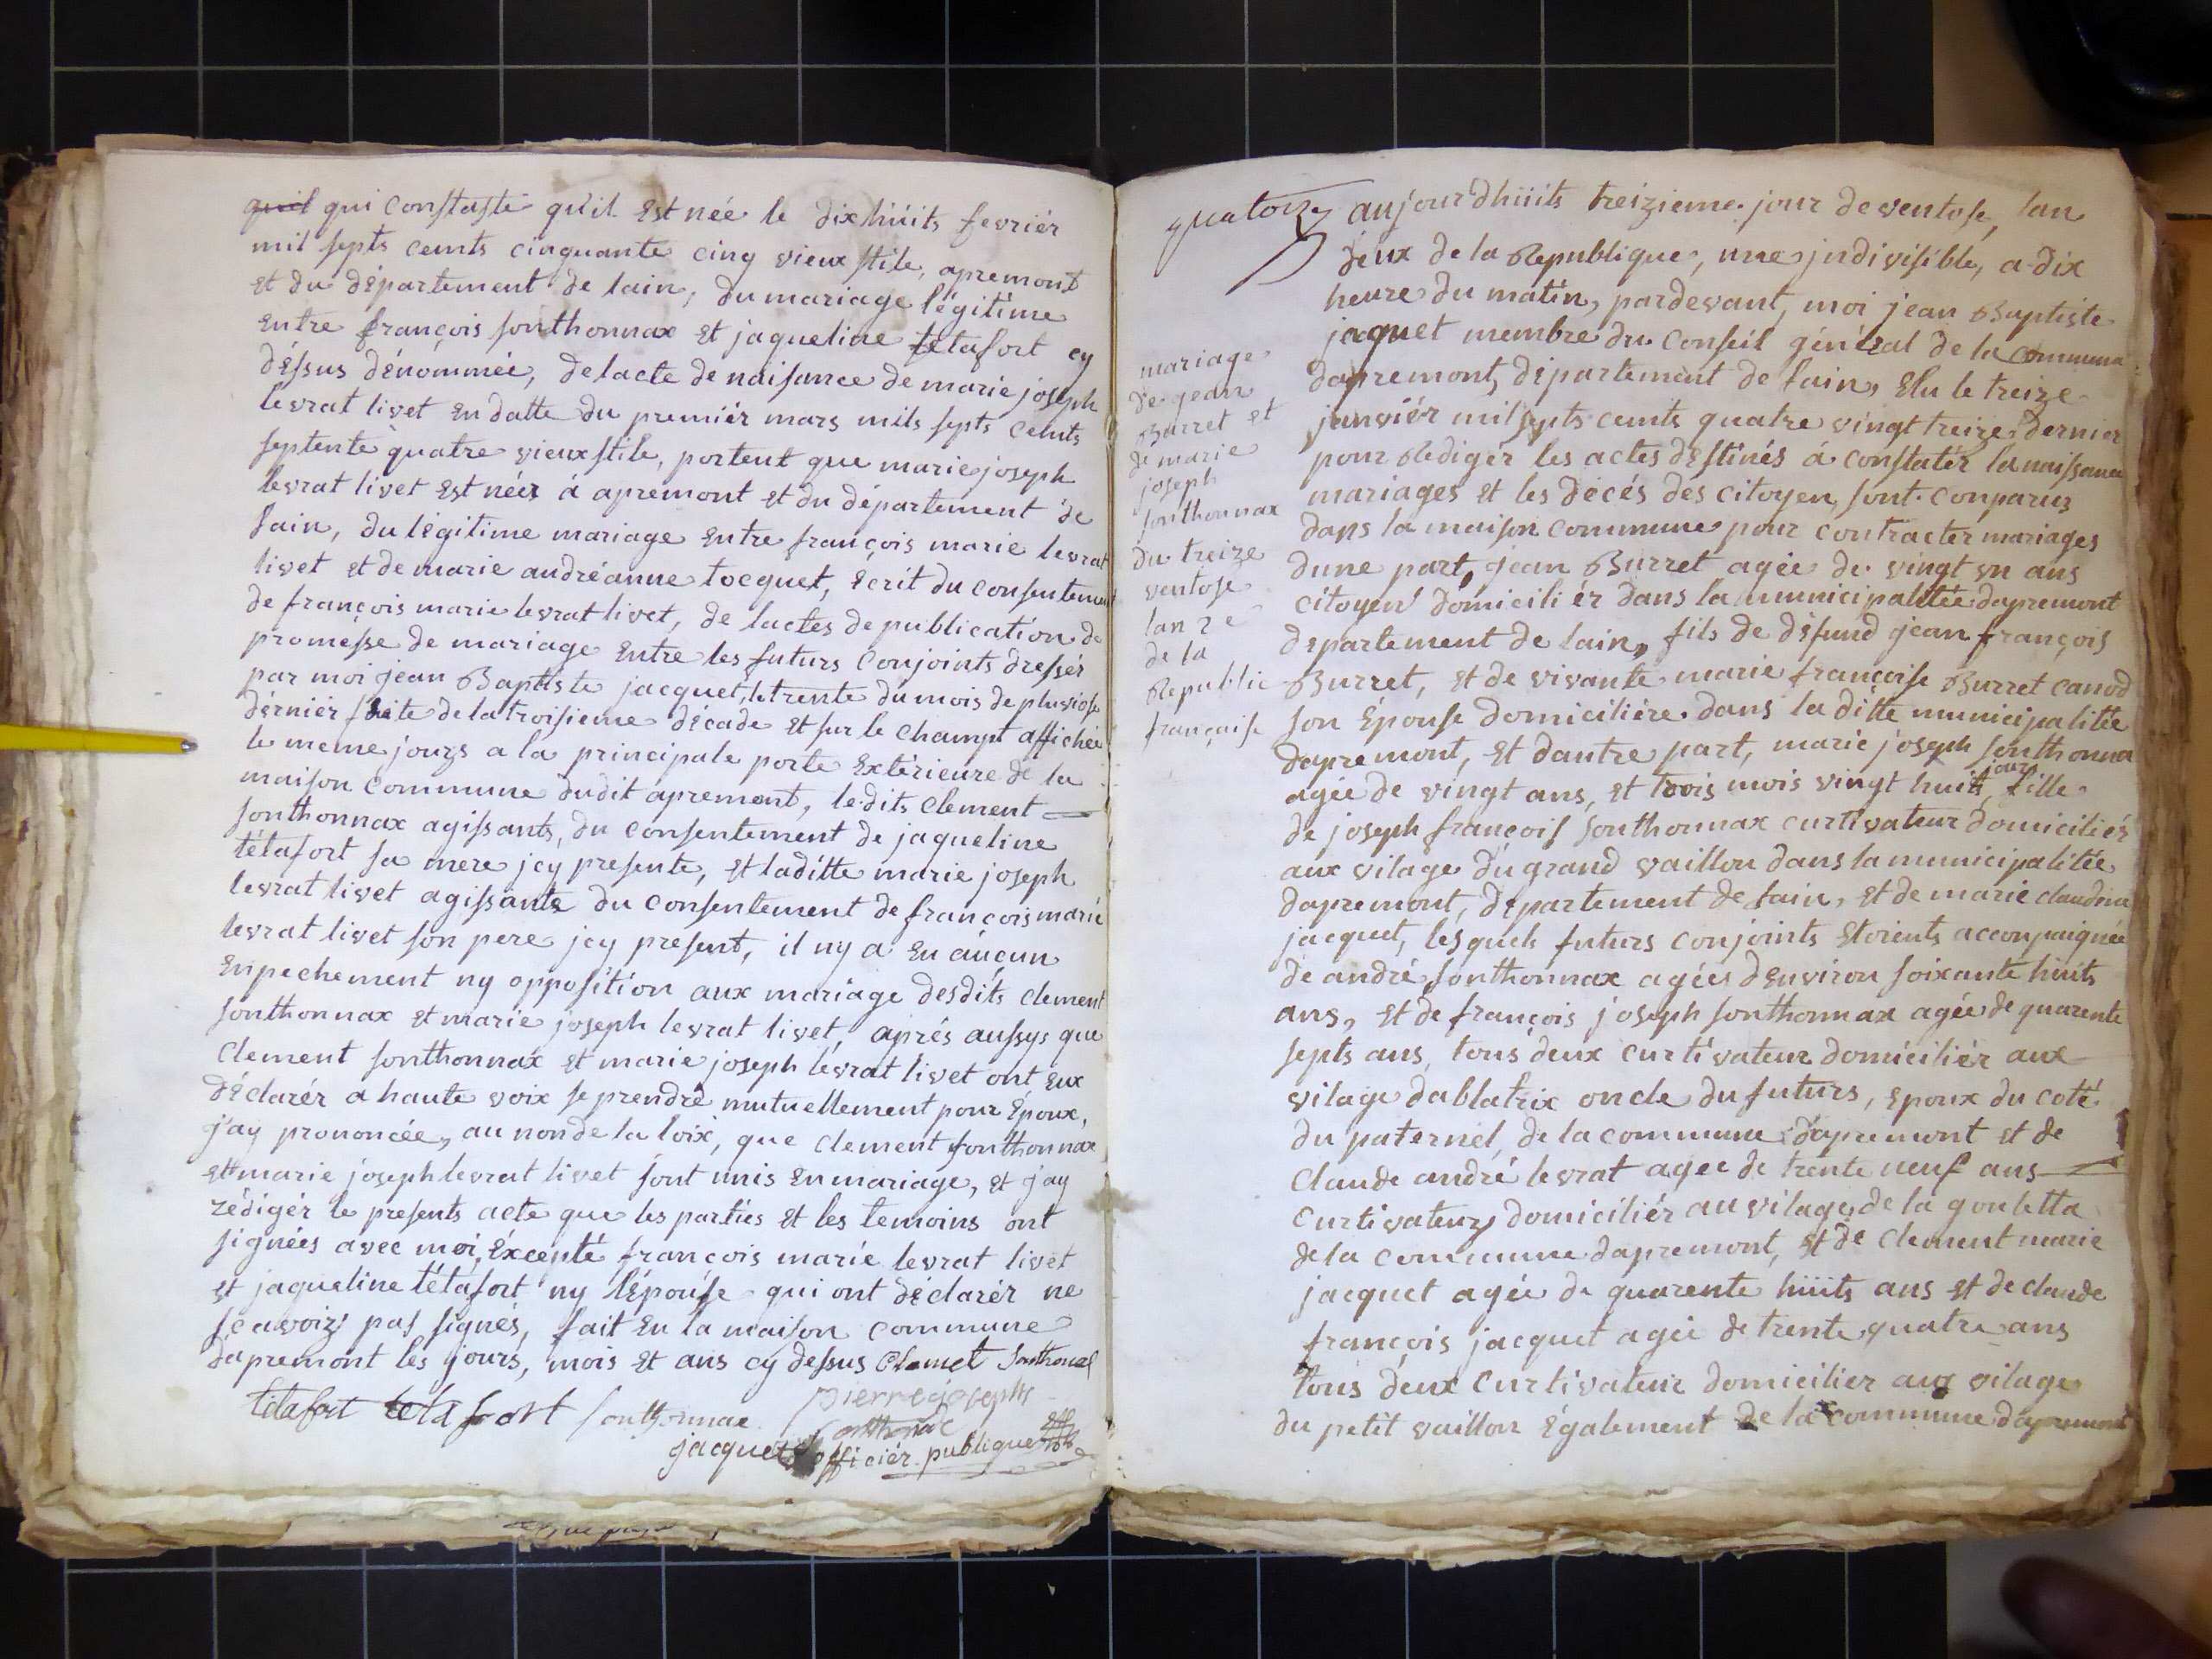 quil qui constaste qu'il Est née le dix huits fevriér
mil septs cents cinquante cinq vieux stile, apremont
et du département de lain, du mariage légitime
Entre françois sonthonnax et jaqueline tetafort cy
déssus dénommée, de lacte de naisance de marie joseph
levrat livet En datte du premiér mars mils septs cents
septente quatre vieux stile, portent que marie joseph
levrat livet Est néer á apremont et du département de
lain, du légitime mariage Entre françois marie levrat
livet et de marie andréanne tocquet, Ecrit du consentement
de françois marie levrat livet, de lactes de publication de
promesse de mariage Entre les futurs conjoints dressér
par moi jean Baptiste jacquet, le trente du mois de pluviose
dérniér suite de la troisieme décade et sur le champt affichée
le meme jours a la principale porte Extérieure de la
maison commune dudit apremont, le dits clement
sonthonnax agissants, du consentement de jaqueline
tétafort sa mere jcy presente, et laditte marie joseph
levrat livet agissante du consentement de françois marie
levrat livet son pere jcy present, il ny a Eu aucun
Enpechement ny opposition aux mariage desdits clement
sonthonnax et marie joseph levrat livet, aprés aussys que
clement sonthonnax et marie joseph lévrat livet ont Eux
déclarér a haute voix se prendre mutuellement pour Époux,
j'ay prononcée, au non de la loix, que clement sonthonnax
et marie joseph levrat livet sont unis En mariage, et j'ay
rédigér le presents acte que les parties et les temoins ont
signées avec moi, éxcepté françois marie levrat livet
et jaqueline tétafort ny lépouse qui ont déclarér ne
scavoir pas signés, fait En la maison commune
dapremont les jours, mois et ans cy dessus Clamet Sonthonax
tétafort tetafort sonthonnax pierre joseph
sonthonax
jacquet officiér publique
quatorze aujourdhuits treizieme jour de ventose, lan
deux de la Republique, une jndivisible, a dix
heure du matin, pardevant, moi jean Baptiste
jaquet membre du conseil général de la commune
dapremont, département de lain, Elu le treize
janviér mil septs cents quatre vingt treize dernier
pour Redigér les actes destinés á constatér la naissance
mariages et les décés des citoyen, sont conparus
dans la maison commune pour contractér mariages
dune part, jean Burret agée de vingt un ans
citoyen domiciliér dans la municipalitée dapremont
departement de lain, fils de défund jean françois
Burret, et de vivante marie françoise Burret canod
son Épouse domiciliére dans la ditte municipalitée
dapremont, et dautre part, marie joseph sonthonna
jour
agée de vingt ans, et trois mois vingt huit, fille
de joseph françois sonthonnax curtivateur domiciliér
aux vilage du grand vaillon dans la municipalitée
dapremont, département de lain, et de marie claudine
jacquet, lesquels futurs conjoints Etoients acconpaignée
de andré sonthonnax agées denviron soixante huits
ans, et de françois joseph sonthonnax agée de quarente
septs ans, tous deux curtivateur domiciliér aux
vilage dablatrix oncle du futurs, epoux du coté
du paternel, de la commune dapremont et de
claude andré levrat agee de trente neuf ans
curtivateur domiciliér au vilage de la gouletta
de la commune dapremont, et de clement marie
jacquet agée de quarente huits ans et de claude
françois jacquet agée de trente quatre ans
tous deux curtivateur domicilier aux vilage
du petit vaillon également de la commune dapremont
mariage
de jean
Burret et
de marie
joseph
sonthonnax
du treize
ventose
lan 2e
de la
Republic
française